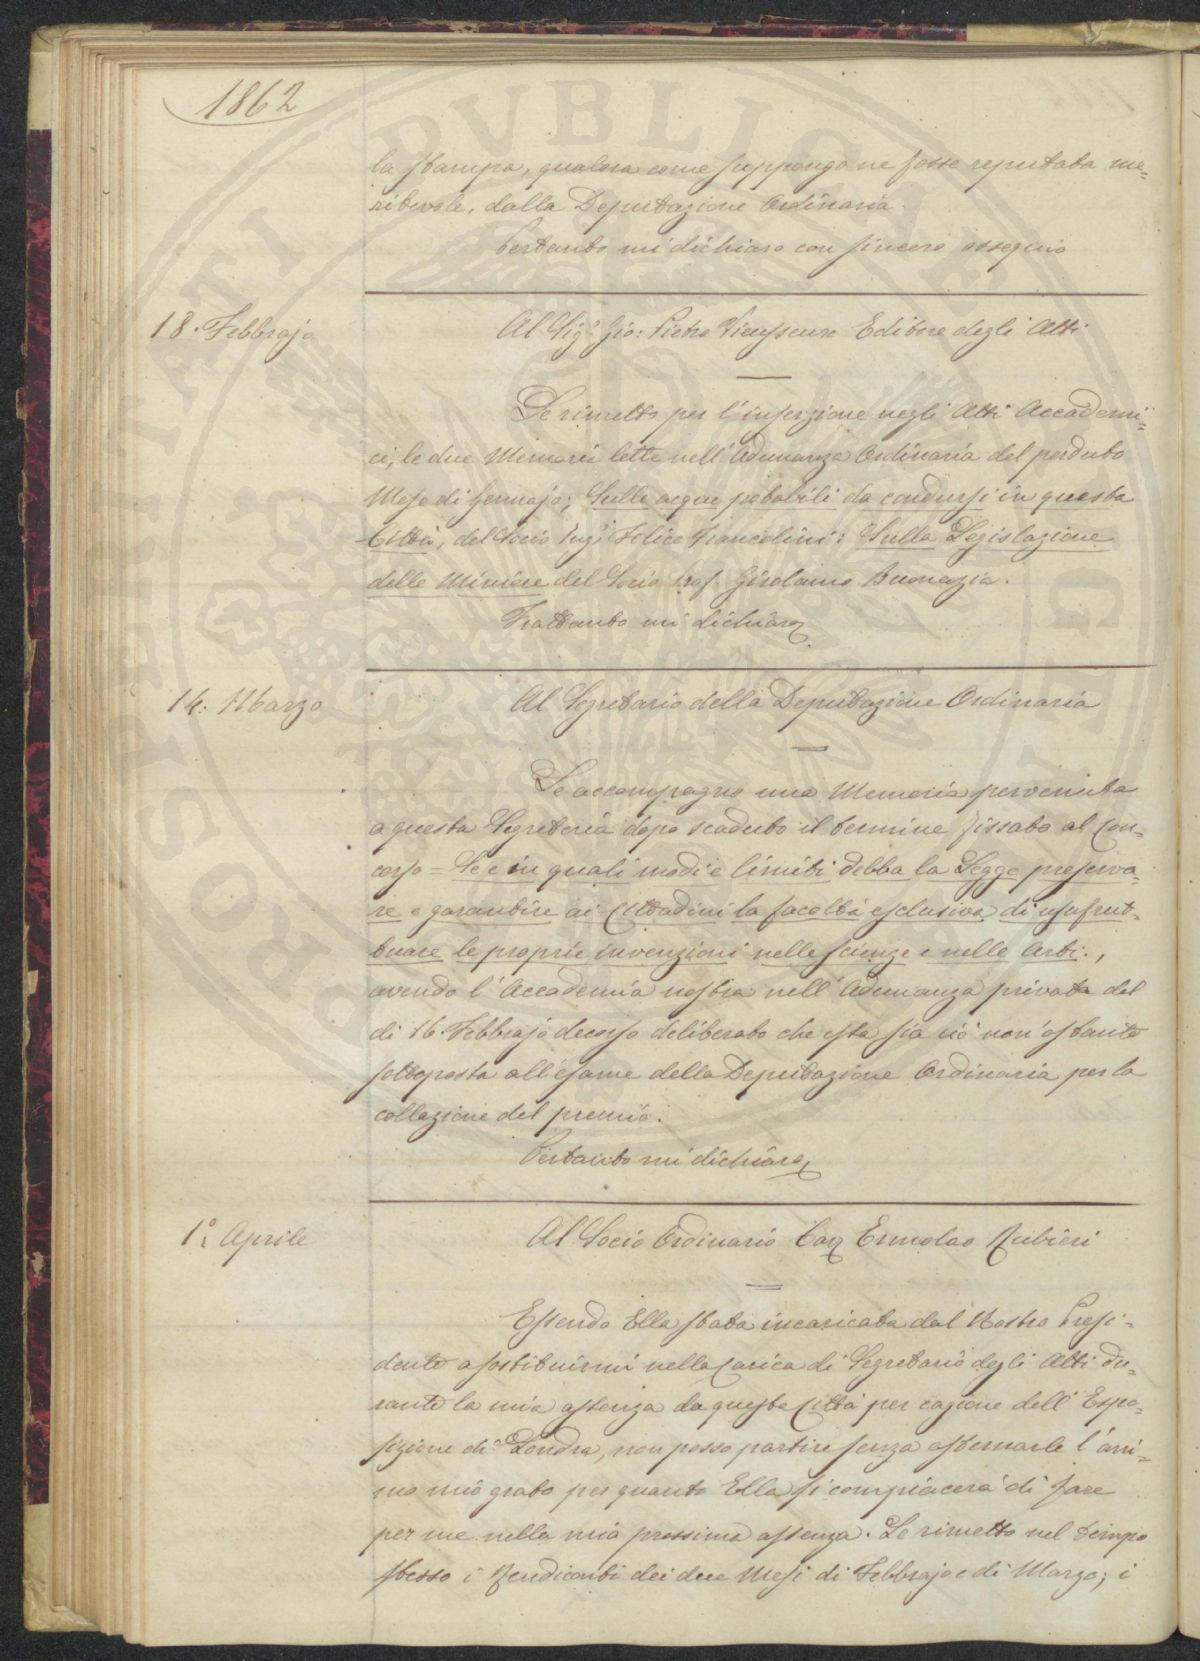 1862
la stampa, qualora come suppongo ne fosse reputata me-
ritevole, dalla Deputazione Ordinaria.
Pertanto mi dichiaro con sincero ossequio
18. Febbrajo
Al Sigr Gio: Pietro Vieusseux Editore degli Atti
Le rimetto per l'inserzione negli Atti Accademi=
ci, le due Memorie lette nell'Adunanza Ordinaria del perduto
Mese di Gennajo; Sulle acque potabili da condursi in questa
Città, del Socio Ingr Felice Francolini: Sulla Legislazione
delle Miniere del Socio Prof. Girolamo Buonazia.
Frattanto mi dichiaro
14. Marzo
Al Segretario della Deputazione Ordinaria
Le accompagno una Memoria pervenuta
a questa Segreteria dopo scaduto il termine fissato al Con=
corso = Se e in quali modi e limiti debba la Legge preserva=
re e garantire ai Cittadini la facoltà esclusiva di usufrut=
tuare le proprie invenzioni nelle scienze e nelle Arti.,
avendo l'Accademia nostra nell'Adunanza privata del
dì 16. Febbrajo decorso deliberato che essa sia ciò non ostante
sottoposta all'esame della Deputazione Ordinaria per la
collazione del premio.
Pertanto mi dichiaro
1° Aprile
Al Socio Ordinario Cav Ermolao Rubieri
Essendo Ella stata incaricata dal Nostro Presi=
dente a sostituirmi nella Carica di Segretario degli Atti du=
rante la mia assenza da questa Città per cagione dell'Espo=
sizione di Londra, non posso partire senza esternarle l'ani=
mo mio grato per quanto Ella si compiacerà di fare
per me nella mia prossima assenza. Le rimetto nel tempo
stesso i Rendiconti dei due Mesi di Febbrajo e di Marzo; i